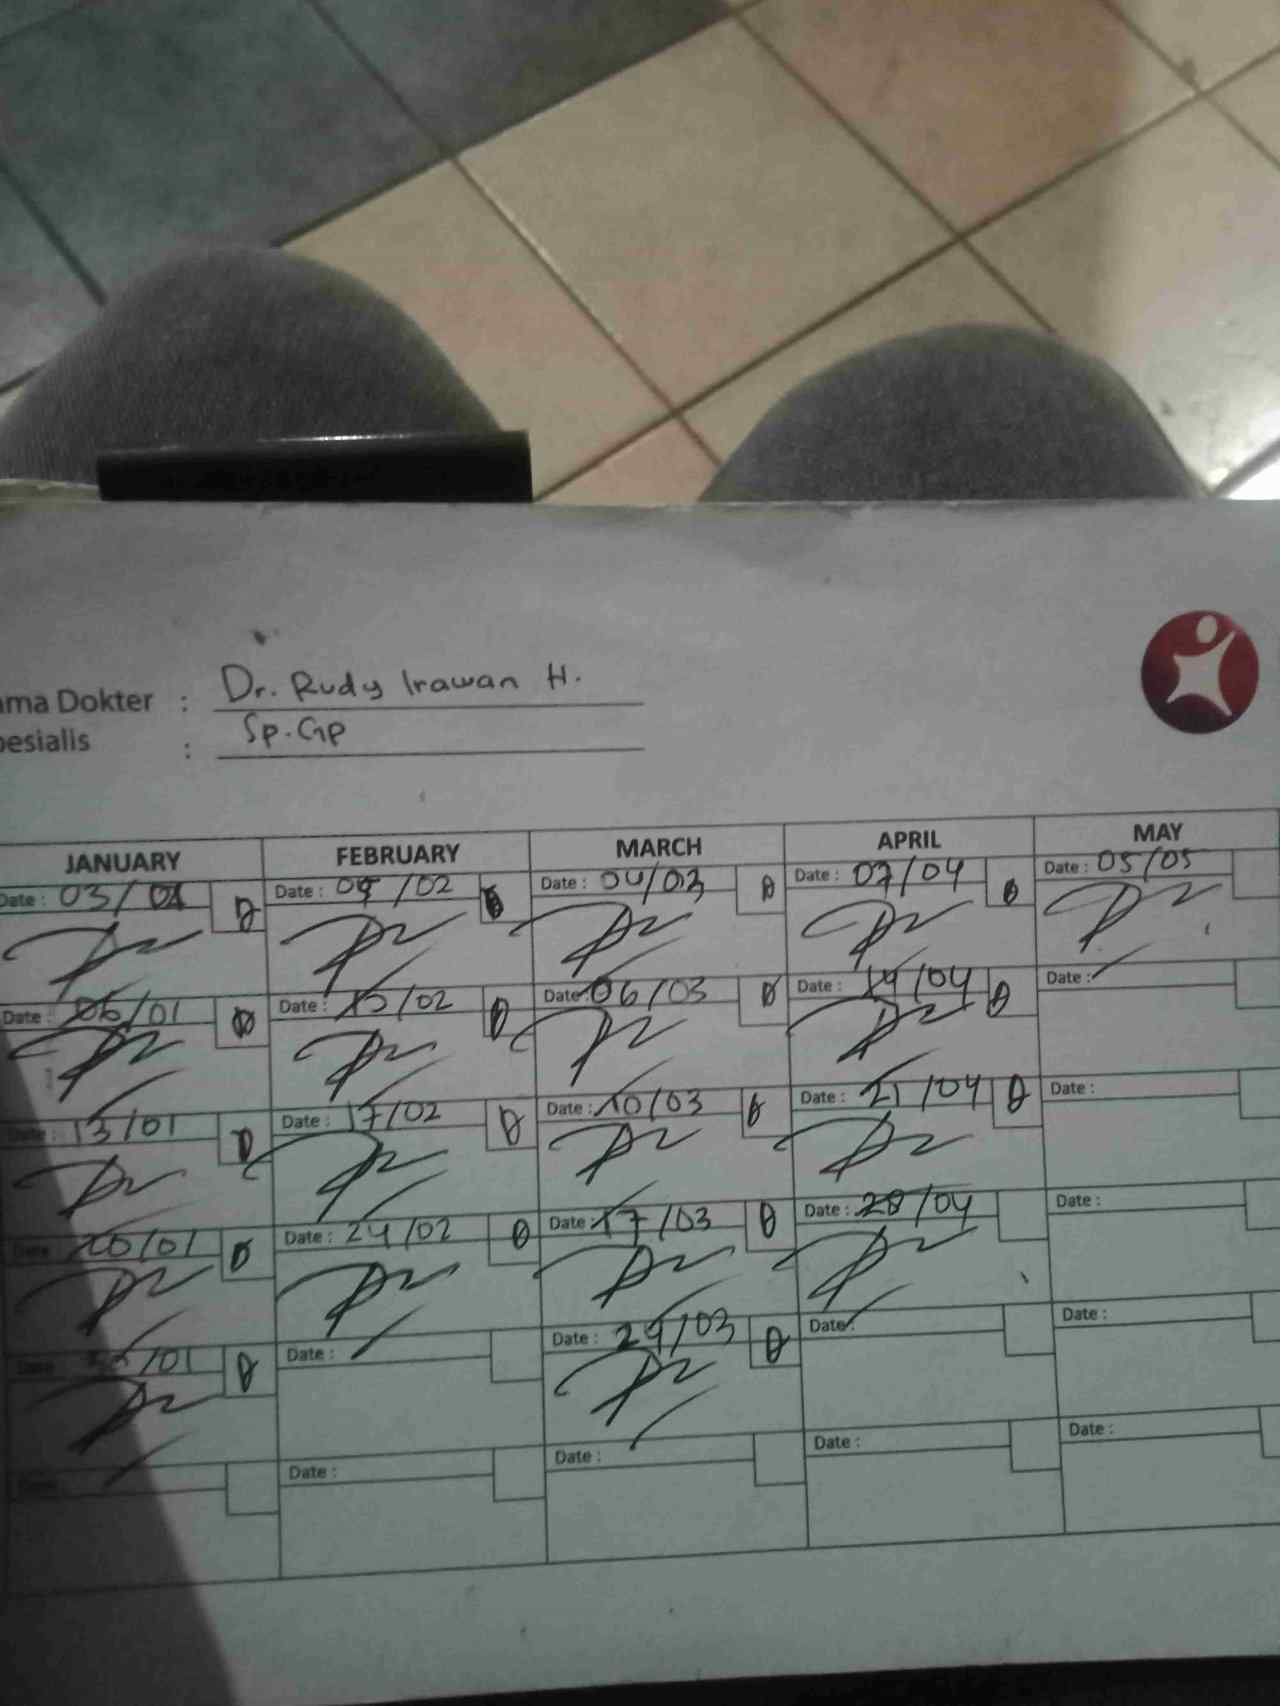 ama Dokter : Dr. Rudy Irawan H.
pesialis : Sp.GP
JANUARY FEBRUARY MARCH APRIL MAY
Date : 03/01 Date : /02 Date : 04/03 Date : 07/04 Date : 05/05
Date : 06/01 Date : /02 Date : 06/03 Date : 14/04 Date :
Date : 13/01 Date : 17/02 Date : 10/03 Date : 21/04 Date :
Date : 20/01 Date : 24/02 Date : 17/03 Date : 28/04 Date :
Date : /01 Date : Date : 24/03 Date : Date :
Date : Date : Date : Date : Date :